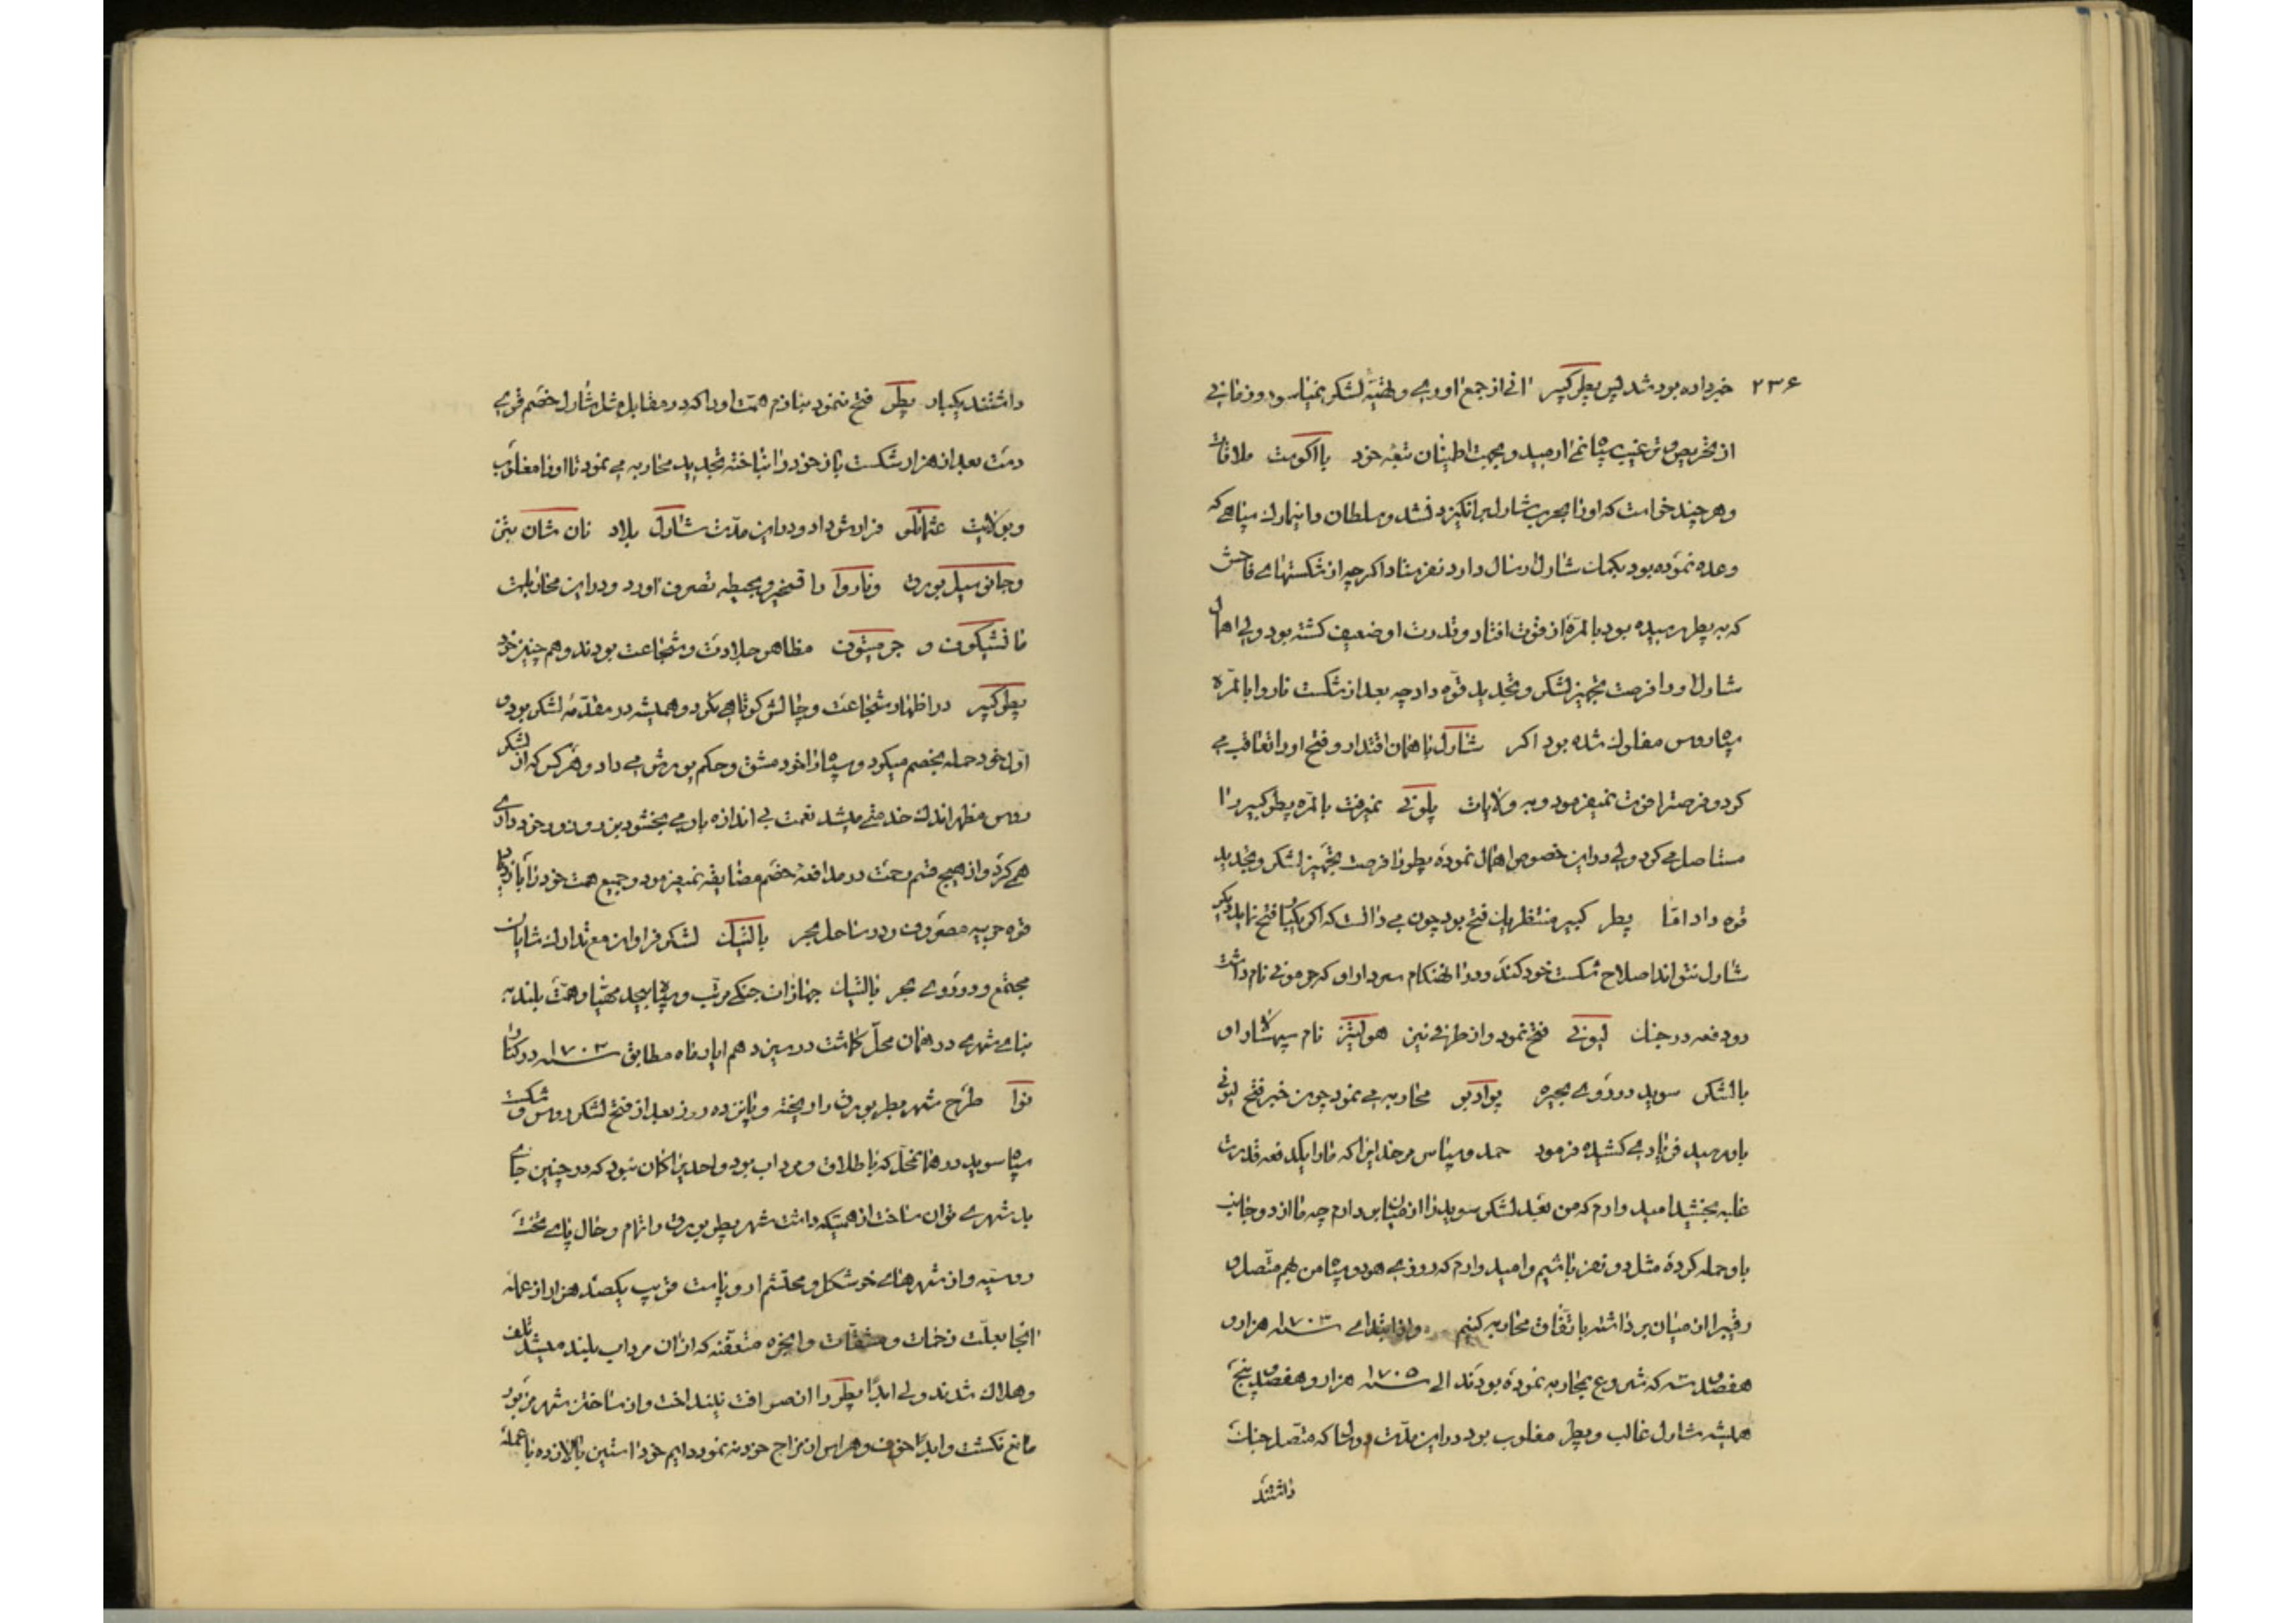 ۲۳۶
خبر داده بود شد پس پطر کبیر آنی از جمع آوری و لشکر نمیاسود و زمانی
از تحریص و ترغیب سپاه نمی آرمید و بجهت اطمینان بقیه خود با اکوست ملاقات
و هر چند خواست که او را بحرب شارل برانگیزد نشد و سلطان دانمارک سپاهی که
وعده نموده بود بکمک شارل ارسال دارد نفرستاد اگر چه از شکستهای فاحش
که به پطر رسیده بود بالمره از قوت افتاد و قدرت او ضعیف گشته بود ولی اهمال
شارل او را فرصت تجهیز لشکر و تجدید قوه داد چه بعد از شکست ناروا بالمره
سپاه روس مفلوک شده بود اگر شارل با همان اقتدار و فتح او را تعاقب می
کرد و فرصت را فوت نمیفرمود و به ولایات پلونی نمیرفت بالمره پطر کبیر را
مستاصل می کرد ولی در این خصوص اهمال نموده پطر را فرصت تجهیز لشکر و تجدید
قوه داد اما پطر کبیر منتظر یک فتح بود چون می دانست که اگر یکبار فتح نماید دیگر
شارل نتواند اصلاح شکست خود کند و در آن هنگام سردار او که جرمونی نام داشت
دو دفعه در جنک لیونی فتح نمود و از طرفی نیز هولیتز نام سپهسالار او
با لشکر سوید در روی بحیره پوادبو محاربه می نمود چون خبر فتح لیونی
باو رسید فریادی کشیده فرمود حمد و سپاس مر خدایرا که ما را یکدفعه قدرت
غلبه بخشید امید دارم که من بعد لشکر سوید را از میان بردارم چه ما از دو جانب
باو حمله کرده مثل دو نفر باشیم و امید دارم که روزی هر دو سپاه من بهم متصل و
رقیب را از میان برداشته باتفاق محاربه کنیم و از ابتدای سنه ۱۷۰۳ هزار و
هفصد و سه که شروع بمحاربه نموده بودند الی سنه ۱۷۰۵ هزار و هفصد و پنج
همیشه شارل غالب و پطر مغلوب بود در این مدت دو سال که متصل جنک
داشتند
داشتند یکبار پطر فتح ننمود بنازم همت او را که در مقابل مثل شارل خصم قوی
دست بعد از هزار شکست باز خود را نباخته تجدید محاربه می نمود تا او را مغلوب
و بولایت عثمانلو فرارش داد و در این مدت شارل بلاد نان شان بتن
و جانوسیل بورق و ناروا را تسخیر و بحیطه تصرف آورد و در این محاربات
مانشیکوف و جرمیتوف مظاهر جلادت و شجاعت بودند و هم چنین خود
پطر کبیر در اظهار شجاعت و چالش کوتاهی نکرد و همیشه در مقدمه لشکر بود و
اول خود حمله بخصم میکرد و سپاه را خود مشق و حکم یورش می داد و هر کس که از لشکر
روس مظهر اندک خدمتی میشد نعمت بی اندازه باو می بخشود بزر و زور خودداری
همی کرد و از هیچ قسم زحمت در مدافعه خصم مضایقه نمیفرمود و جمیع همت خود را بازدیاد
قوه حربیه مصروف و در ساحل بحر بالتیک لشکر فراوان مع تدارک شایان
مجتمع و در روی بحر بالتیک جهازات جنکی مرتب و سپاه بیحد مهیا و همت بلند به
بنای شهری در همان محل گماشت در سیزدهم ایار ماه مطابق سنه ۱۷۰۳ در کنار
نوا طرح شهر پطربورق را ریخته و پانزده روز بعد از فتح لشکر روس و شکست
سپاه سوید در همانمحل که باطلاق و مرداب بود و احدیرا گمان نبود که در چنین جای
بد شهری توان ساخت از همتیکه داشت شهر پطربورق را تمام و حال پای تخت
روسیه و از شهرهای خوشکل و محتشم اروپا است قریب یکصد هزار از عمله
آنجا بعلت زحمات و مشقات و ابخره متعفنه که از آن مرداب بلند میشد تلف
و هلاک شدند ولی ابدا پطر را از صرافت نینداخت و از ساختن شهر مزبور
مانع نکشت و ابدا خوف و هراس از مزاج خود ننمود دایم خود آستین بالا زده با عمله